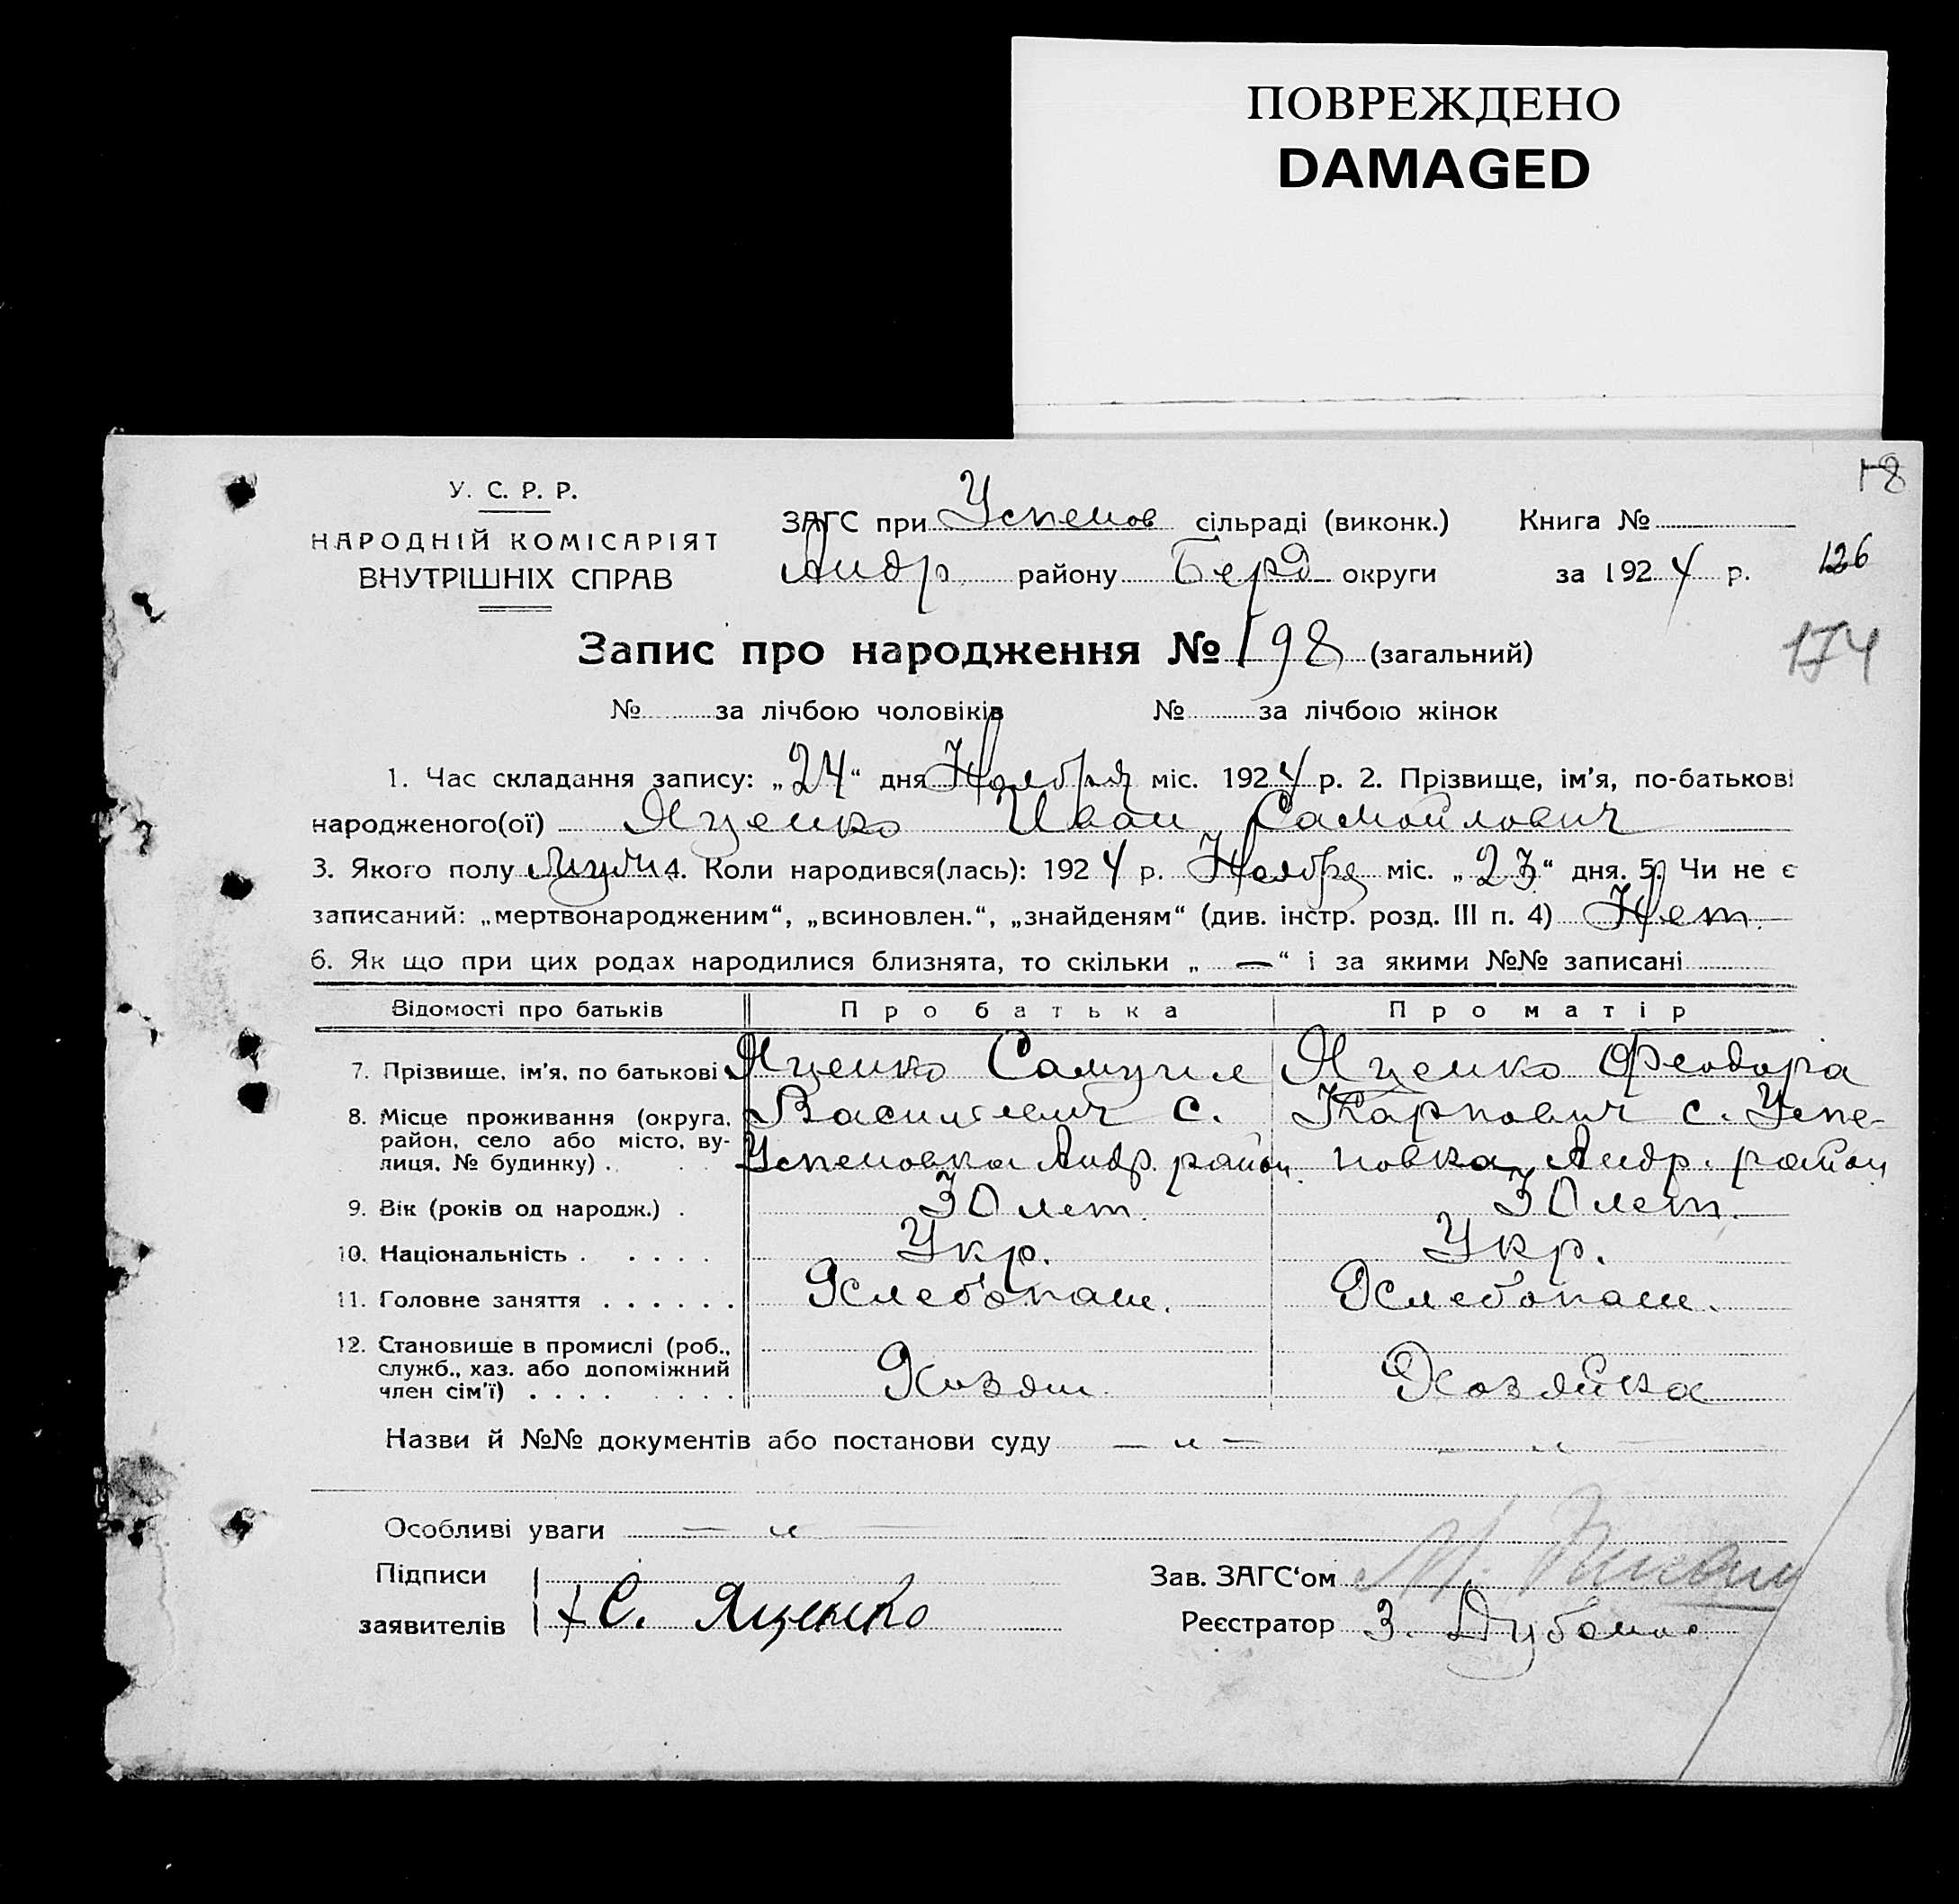 ПОВРЕЖДЕНО
DAMAGED
18
У. С. Р. Р.
НАРОДНІЙ КОМІСАРІЯТ
ВНУТРІШНІХ СПРАВ
ЗАГС при Успенов сільраді (виконк.) Книга №
Андр. району Берд округи за 1924 р.
126
Запис про народження № 198 (загальний)
174
№ за лічбою чоловіків № за лічбою жінок
1. Час складання запису: „24“ дня Ноября міс. 1924 р. 2. Прізвище, ім’я, по-батькові
народженого(ої) Яценко Иван Самойлович
3. Якого полу мужч 4. Коли народився(лась): 1924 р. Ноября міс. „23“ дня. 5. Чи не є
записаний: „мертвонародженим“, „всиновлен.“, „знайденям“ (див. інстр. розд. III п. 4) Нет.
6. Як що при цих родах народилися близнята, то скільки „ — “ і за якими №№ записані
Відомості про батьків Про батька Про матір
7. Прізвище, ім’я, по батькові Яценко Самуил Яценко Феодора
8. Місце проживання (округа, Василевич с. Карпович с. Успе-
район, село або місто, ву-
лиця, № будинку) . Успеновка Андр. район. новка Андр. район
9. Вік (років од народж.) . 30 лет. 30 лет.
10. Національність . . . . . Укр. Укр.
11. Головне заняття . . . . . . Хлебопаш. Хлебопаш.
12. Становище в промислі (роб.,
служб., хаз. або допоміжний Хозяин Хозяйка
член сім’ї) . . . . . . . .
Назви й №№ документів або постанови суду — „ — — „ —
Особливі уваги — „ —
Підписи
заявителів + С. Яценко
Зав. ЗАГС‘ом М.
Реєстратор З.